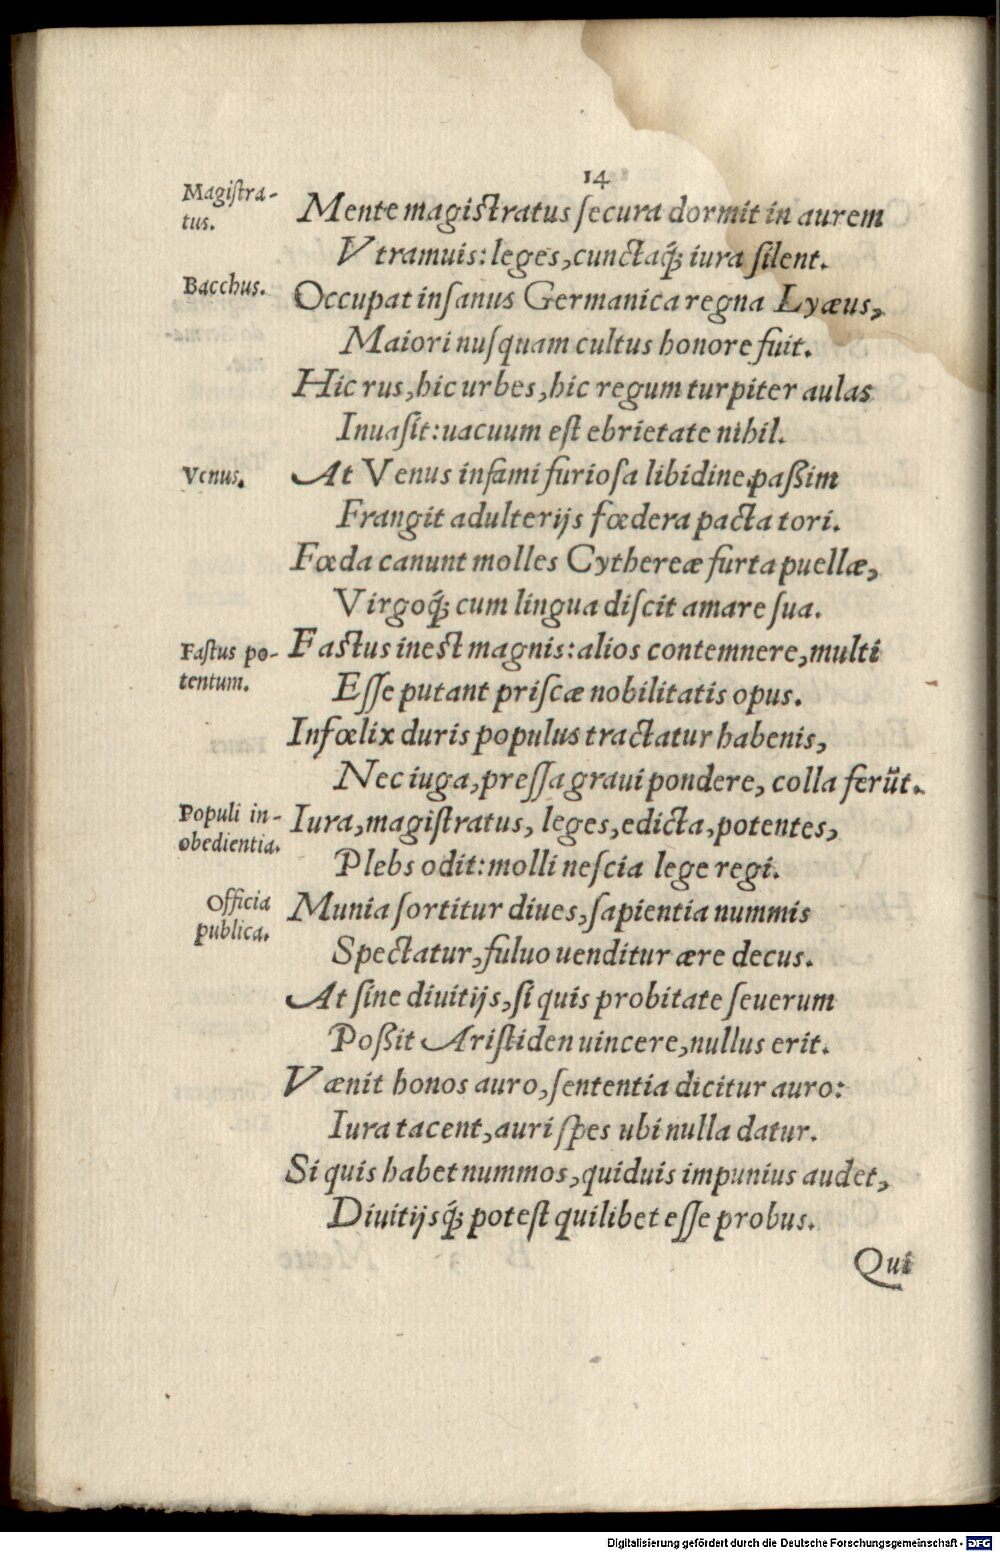 14
Magiſtra-
tus.
Mente magistratus ſecura dormit in aurem
Vtramuis: leges, cunctaq́; iura ſilent.
Bacchus.
Occupat inſanus Germanica regna Lyæus,
Maiori nuſquam cultus honore fuit.
Hic rus, hic urbes, hic regum turpiter aulas
Inuaſit: uacuum eſt ebrietate nihil.
Venus.
At Venus infami furioſa libidine paßim
Frangit adulterijs fœdera pacta tori.
Fœda canunt molles Cythereæ furta puellæ,
Virgoq́; cum lingua diſcit amare ſua.
Faſtus po-
tentum.
Fastus inest magnis: alios contemnere, multi
Eſſe putant priſcæ nobilitatis opus.
Infœlix duris populus tractatur habenis,
Nec iuga, preſſa graui pondere, colla ferũt.
Populi in-
obedientia.
Iura, magiſtratus, leges, edicta, potentes,
Plebs odit: molli neſcia lege regi.
Officia
publica.
Munia ſortitur diues, ſapientia nummis
Spectatur, fuluo uenditur ære decus.
At ſine diuitijs, ſi quis probitate ſeuerum
Poßit Ariſtiden uincere, nullus erit.
Vænit honos auro, ſententia dicitur auro:
Iura tacent, auri ſpes ubi nulla datur.
Si quis habet nummos, quiduis impunius audet,
Diuitijsq́; poteſt quilibet eſſe probus.
Qui
Digitalisierung gefördert durch die Deutsche Forschungsgemeinschaft - DFG